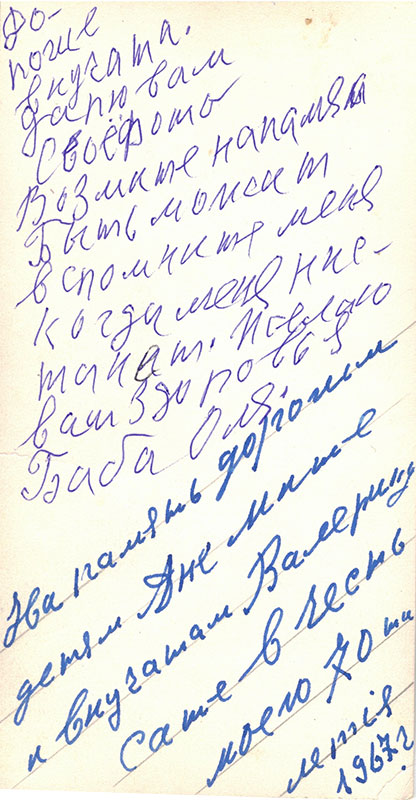 До-
рогие
внучата.
Дарю вам
своё фото
Возмите напамят
Бытьможит
вспомните меня
когда меня ние-
танит. Желаю
вам здоровья
Баба Оля.
На память дорогим
детям Ане Мите
и внучатам Валерику
Саше в честь
моего 70 ти
летия
1967 г.